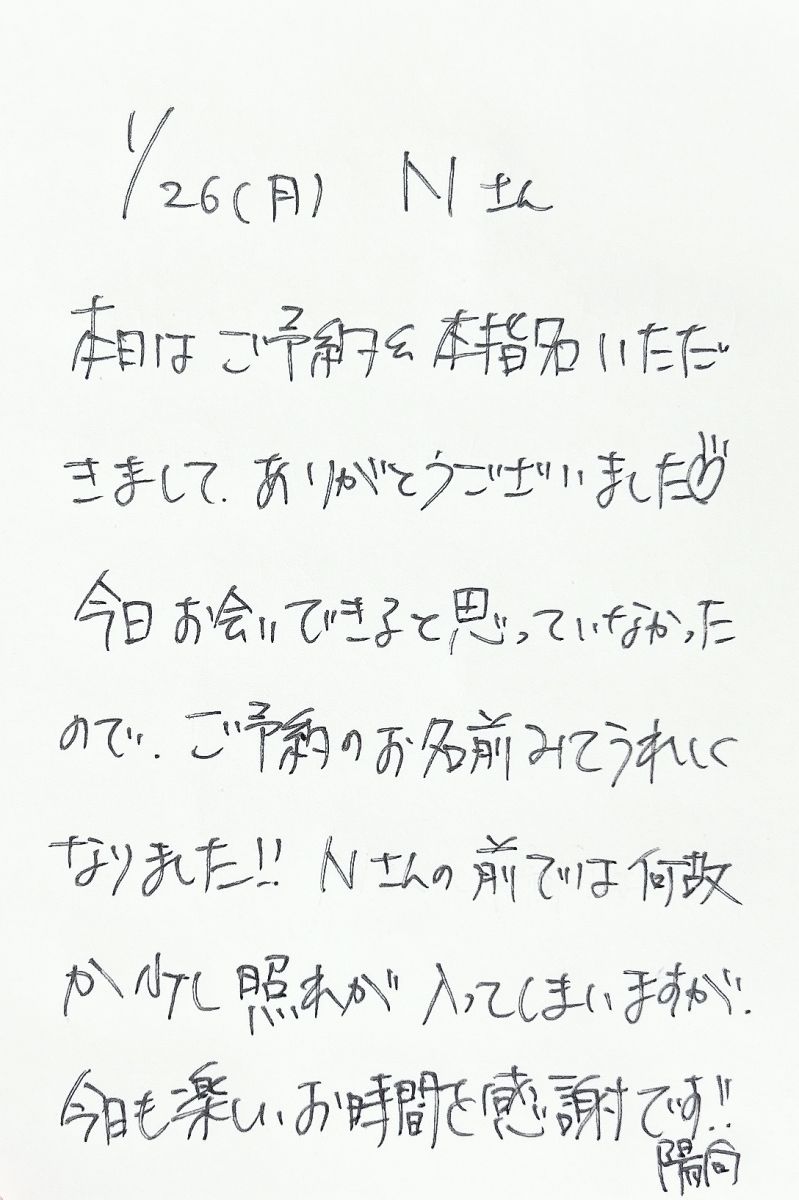 1/26(月) Nさん
本日はご予約を本指名いただ
きまして、ありがとうございました
今日お会いできると思っていなかった
ので、ご予約のお名前みてうれしく
なりました!! Nさんの前では何故
か少し照れが入ってしまいますが、
今日も楽しいお時間を感謝です!!
陽向